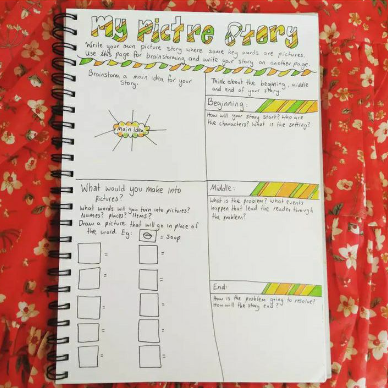 My Pictre Story
Write your own picture story where some key words are pictures.
Use this page for brainstorming and write your story on another page.
Brainstorm a main idea for your
story.
Main Idea
Think about the beginning, middle
and end of your story.
Beginning:
How will your story start? who are
the characters? What is the setting?
What would you make into
Pictures?
What words will you turn into pictures?
Names? places? Items?
Draw a picture that will go in place of
the word. Eg: = Soup
=
=
=
=
=
=
=
=
=
=
Middle:
What is the problem? What events
happen that lead the reader through
the problem?
End:
How is the problem going to resolve?
How will the story end?